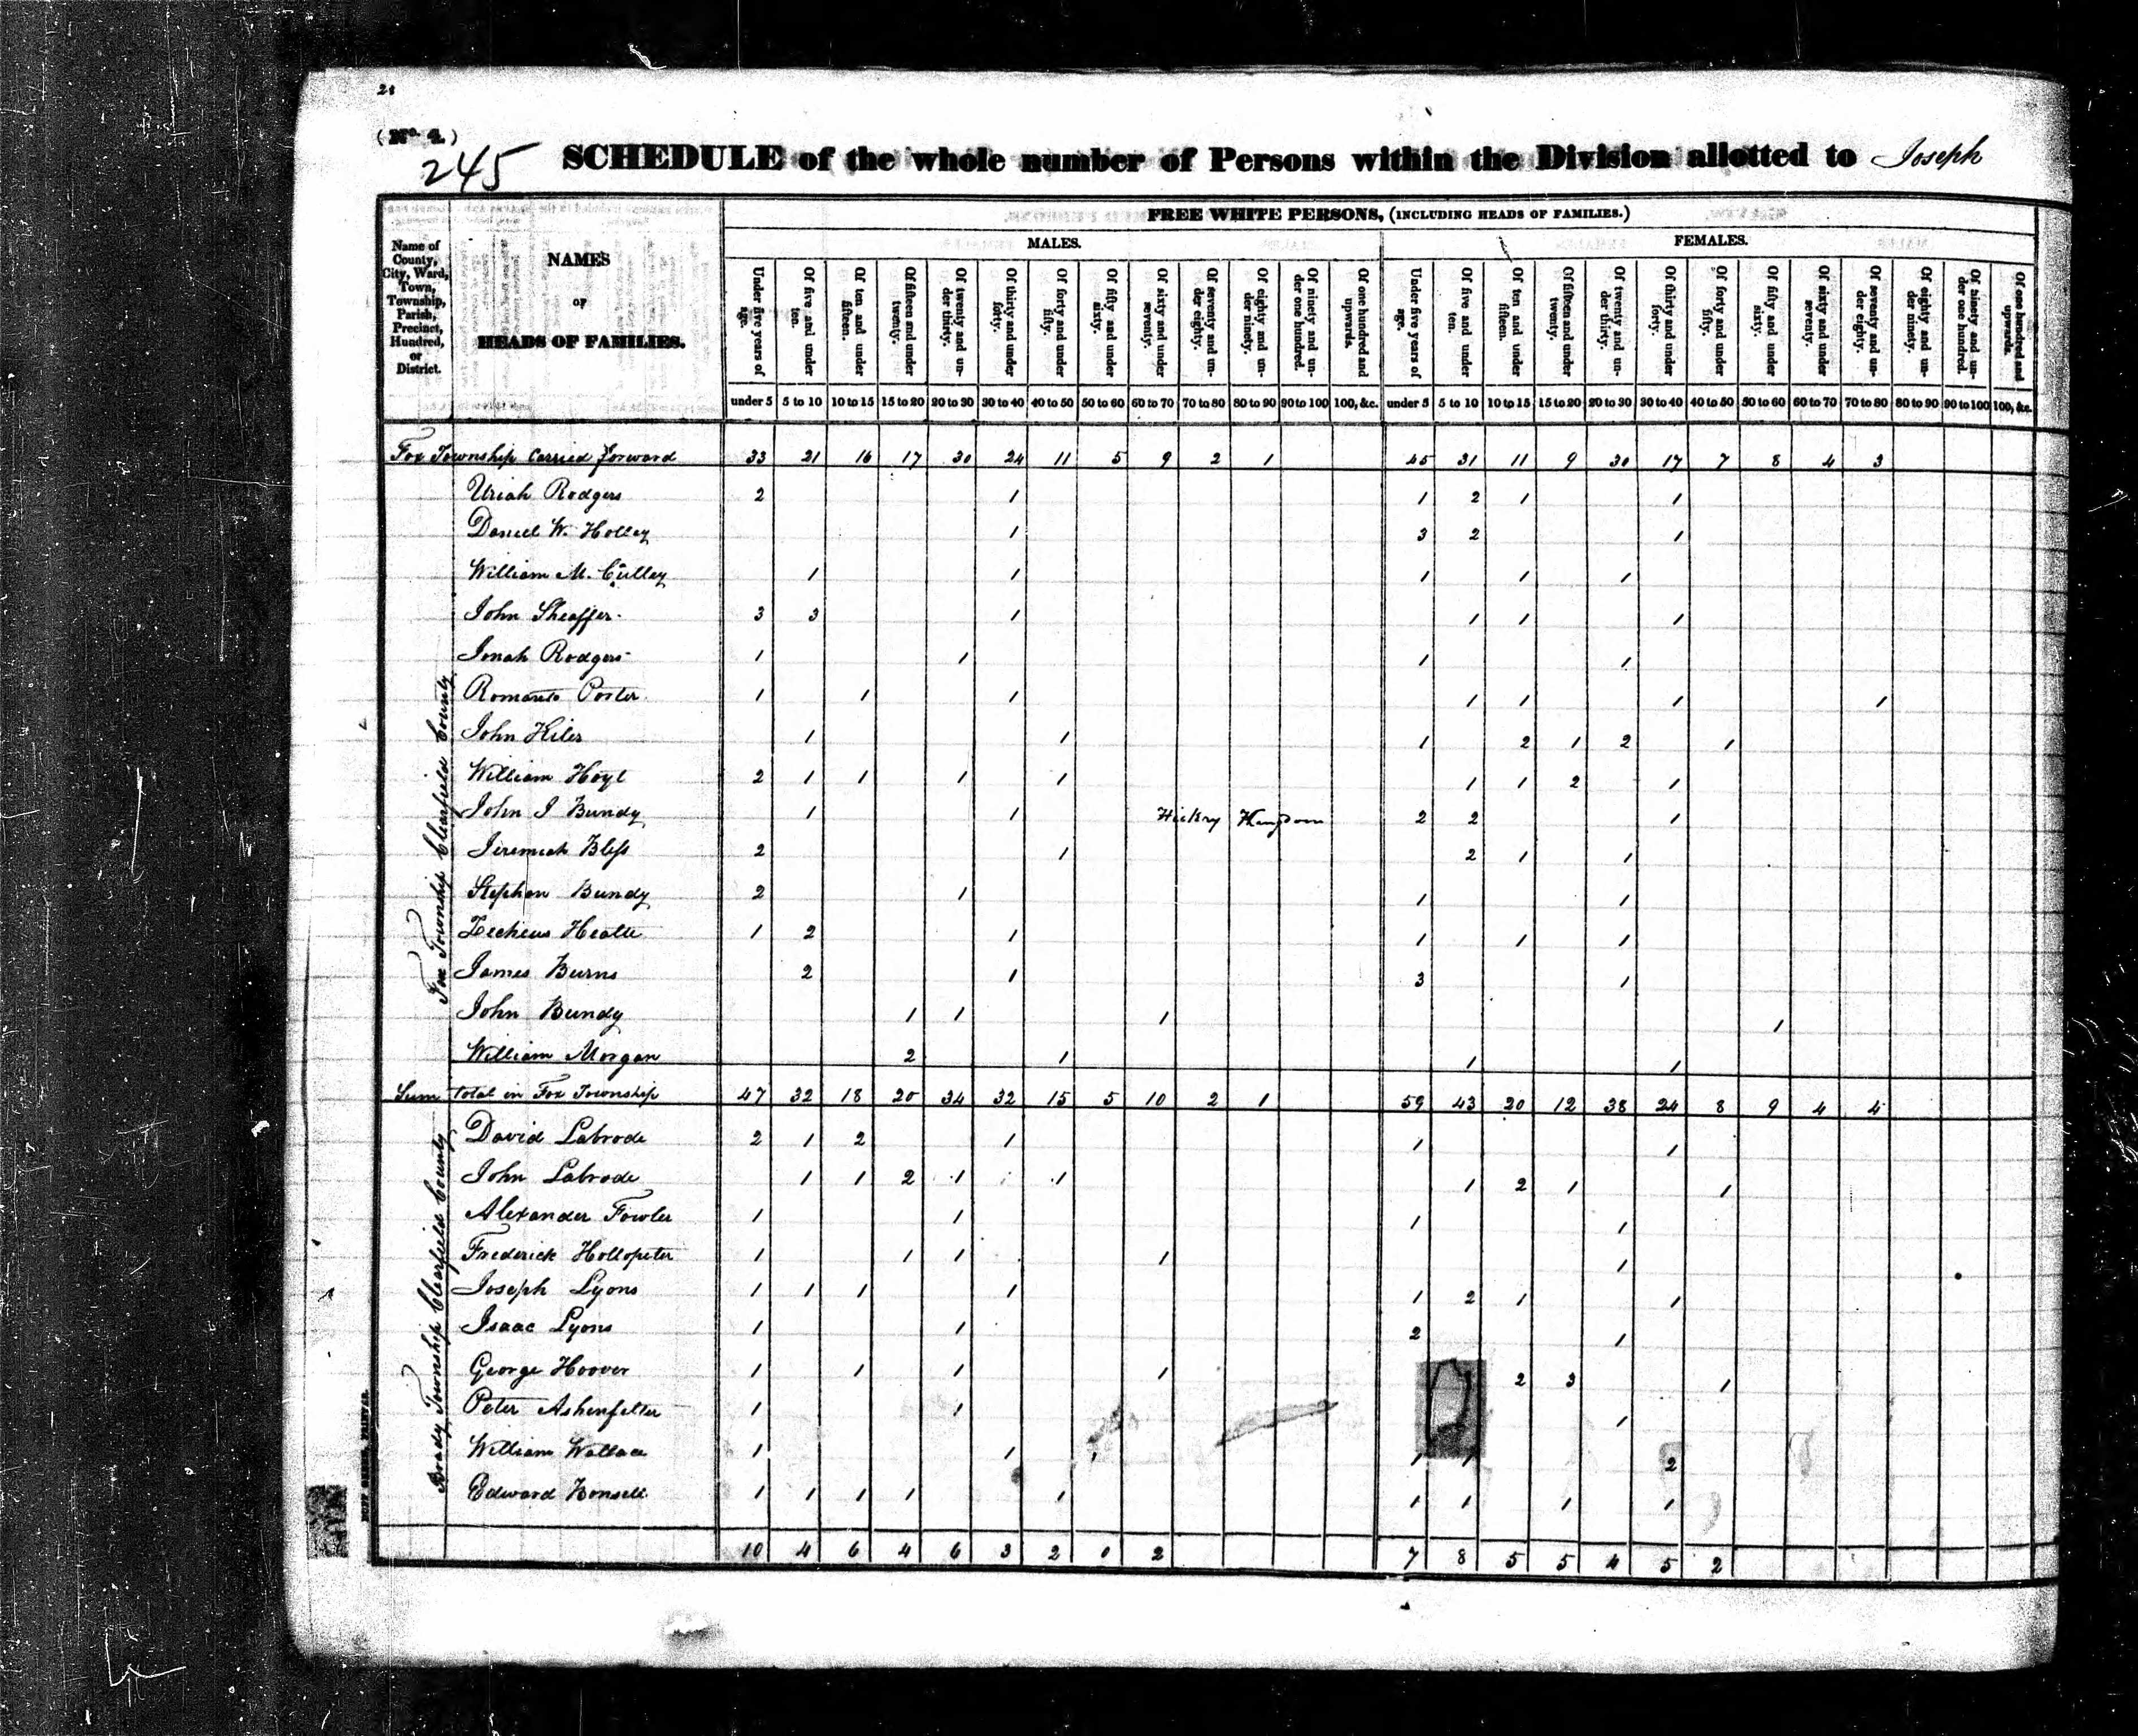 28
(No. 4.)
245
SCHEDULE of the whole number of Persons within the Division allotted to Joseph
FREE WHITE PERSONS, (INCLUDING HEADS OF FAMILIES.)
MALES. FEMALES.
Name of County, City, Ward, Town, Township, Parish, Precinct, Hundred, or District.
NAMES
OF
HEADS OF FAMILIES.
Under five years of age. Of five and under ten. Of ten and under fifteen. Of fifteen and under twenty. Of twenty and under thirty. Of thirty and under forty. Of forty and under fifty. Of fifty and under sixty. Of sixty and under seventy. Of seventy and under eighty. Of eighty and under ninety. Of ninety and under one hundred. Of one hundred and upwards. Under five years of age. Of five and under ten. Of ten and under fifteen. Of fifteen and under twenty. Of twenty and under thirty. Of thirty and under forty. Of forty and under fifty. Of fifty and under sixty. Of sixty and under seventy. Of seventy and under eighty. Of eighty and under ninety. Of ninety and under one hundred. Of one hundred and upwards.
under 5 5 to 10 10 to 15 15 to 20 20 to 30 30 to 40 40 to 50 50 to 60 60 to 70 70 to 80 80 to 90 90 to 100 100, &c. under 5 5 to 10 10 to 15 15 to 20 20 to 30 30 to 40 40 to 50 50 to 60 60 to 70 70 to 80 80 to 90 90 to 100 100, &c.
Fox Township Carried forward 33 21 16 17 30 24 11 5 9 2 1 45 31 11 9 30 17 7 8 4 3
Uriah Rodgers 2 1 1 2 1 1
Daniel W. Holley 1 3 2 1
William M. Culley 1 1 1 1 1
John Sheaffer 3 3 1 1 1 1
Jonah Rodgers 1 1 1 1
Romanto Porter 1 1 1 1 1 1 1
John Kiler 1 1 1 2 1 2 1
William Hoyt 2 1 1 1 1 1 1 2 1
John J Bundy 1 1 Hickry Kingdom 2 2 1
Jeremiah Bliss 2 1 2 1 1
Stephen Bundy 2 1 1 1
Heath 1 2 1 1 1 1
James Burns 2 1 3 1
John Bundy 1 1 1 1
William Morgan 2 1 1 1
Fox Township Clearfield County
Sum total in Fox Township 47 32 18 20 34 32 15 5 10 2 1 59 43 20 12 38 24 8 9 4 4
David Labrode 2 1 2 1 1 1
John Labrode 1 1 2 1 1 1 2 1 1
Alexander Fowler 1 1 1 1
Frederick Hollopeter 1 1 1 1 1
Joseph Lyons 1 1 1 1 1 2 1 1
Isaac Lyons 1 1 2 1
George Hoover 1 1 1 1 2 3 1
Peter Ashenfelter 1 1 1
William Wallace 1 1 1 1 2
Edward 1 1 1 1 1 1 1 1 1
Brady Township Clearfield County
10 4 6 4 6 3 2 0 2 7 8 5 5 4 5 2